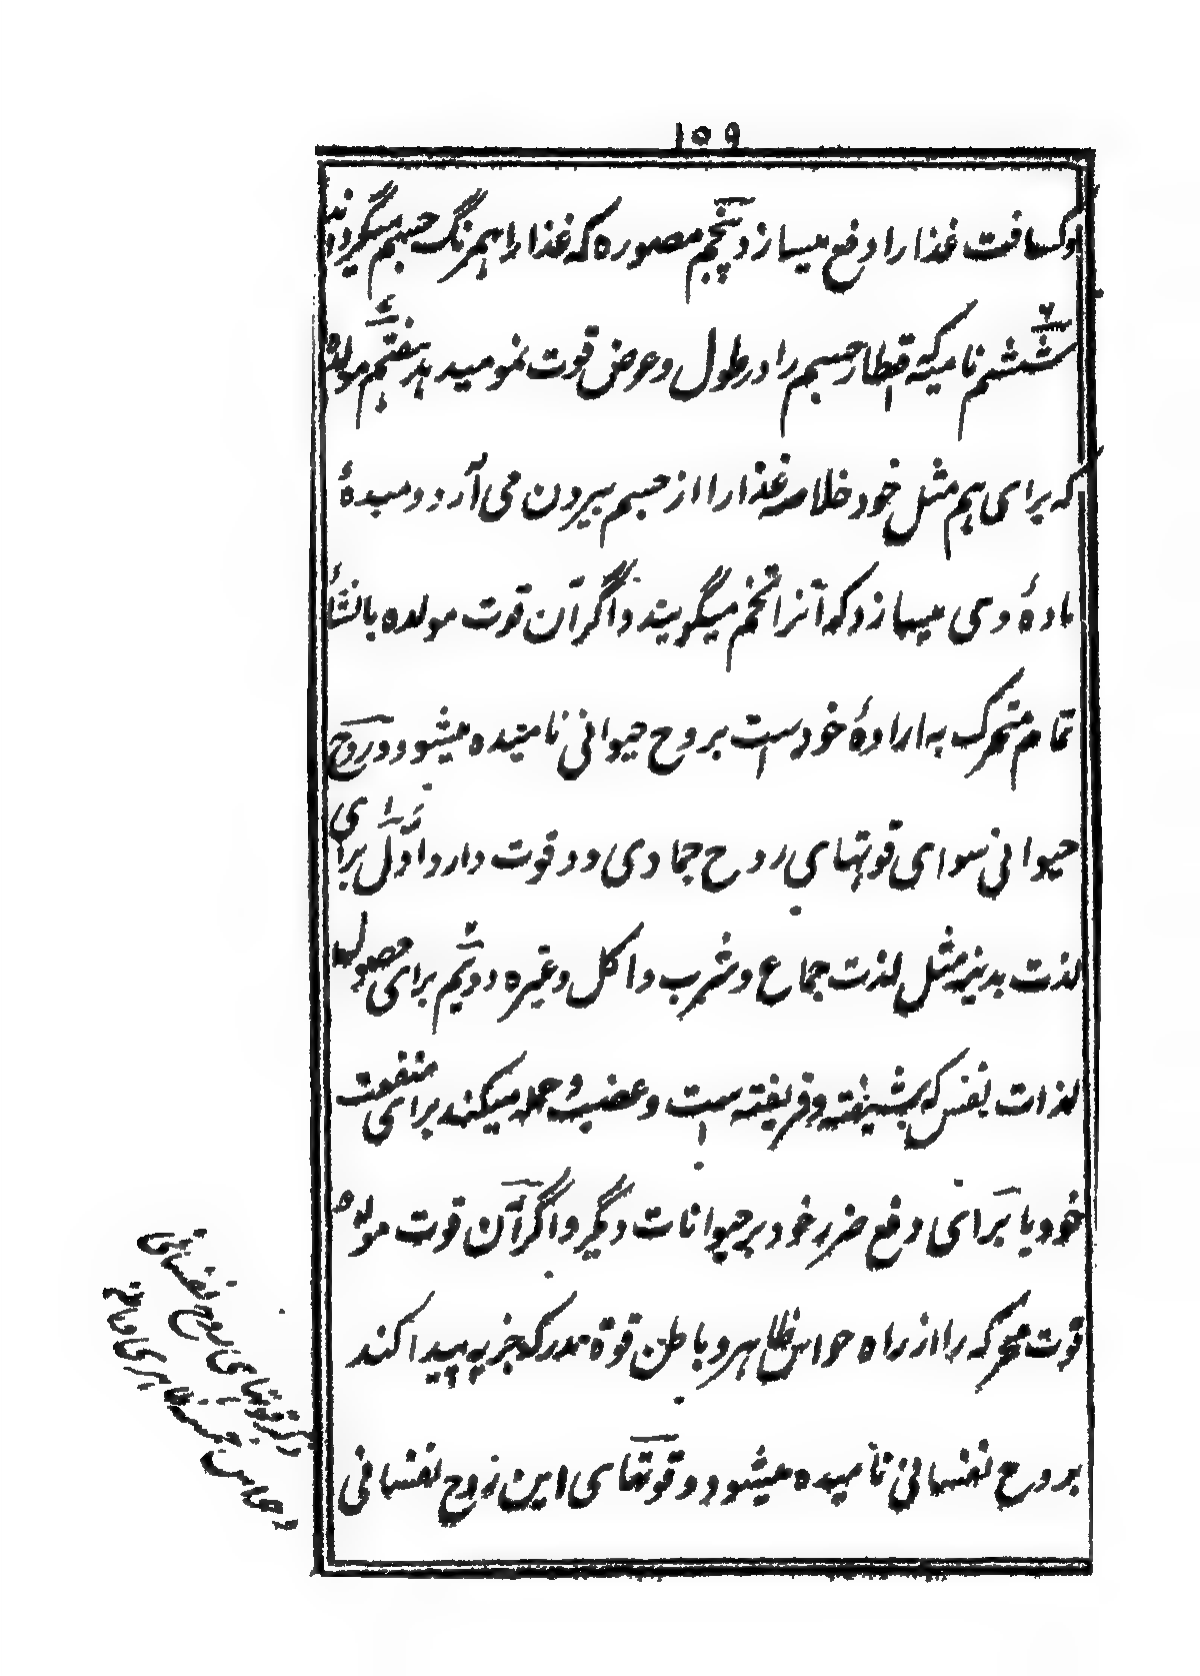 ۱۵۹
و کسافت غذا را دفع میسازد پنجم مصوره که غذا را همرنگ جسم میگرداند
ششم نامیه که اقطار جسم را در طول و عرض قوت نمو میدهد هفتم مولده
که برای هم مثل خود خلاصه غذا را از جسم بیرون می آرد و مبدهٔ
مادهٔ وی میسازد که آنرا تخم میگویند و اگر آن قوت مولده بانشأ
تمام متحرک به ارادهٔ خود است بروح حیوانی نامیده میشود و در روح
حیوانی سوای قوتهای روح جمادی دو قوت دارد اول برای
لذت بدنیه مثل لذت جماع و شرب و اکل و غیره دویم برای حصول
لذات نفس که بشیفته و فریفته است و غضب و حمله میکند برای منفعت
خود یا برای دفع ضرر خود بر حیوانات دیگر و اگر آن قوت مولده
قوت محرکه را از راه حواس ظاهر و باطن قوة مدرکه جزیه پیدا کند
بروح نفسانی نامیده میشود و قوتهای این روح نفسانی
ذکر قوتهای روح نفسانی
و حواس خمسه ظاهری و باطنی